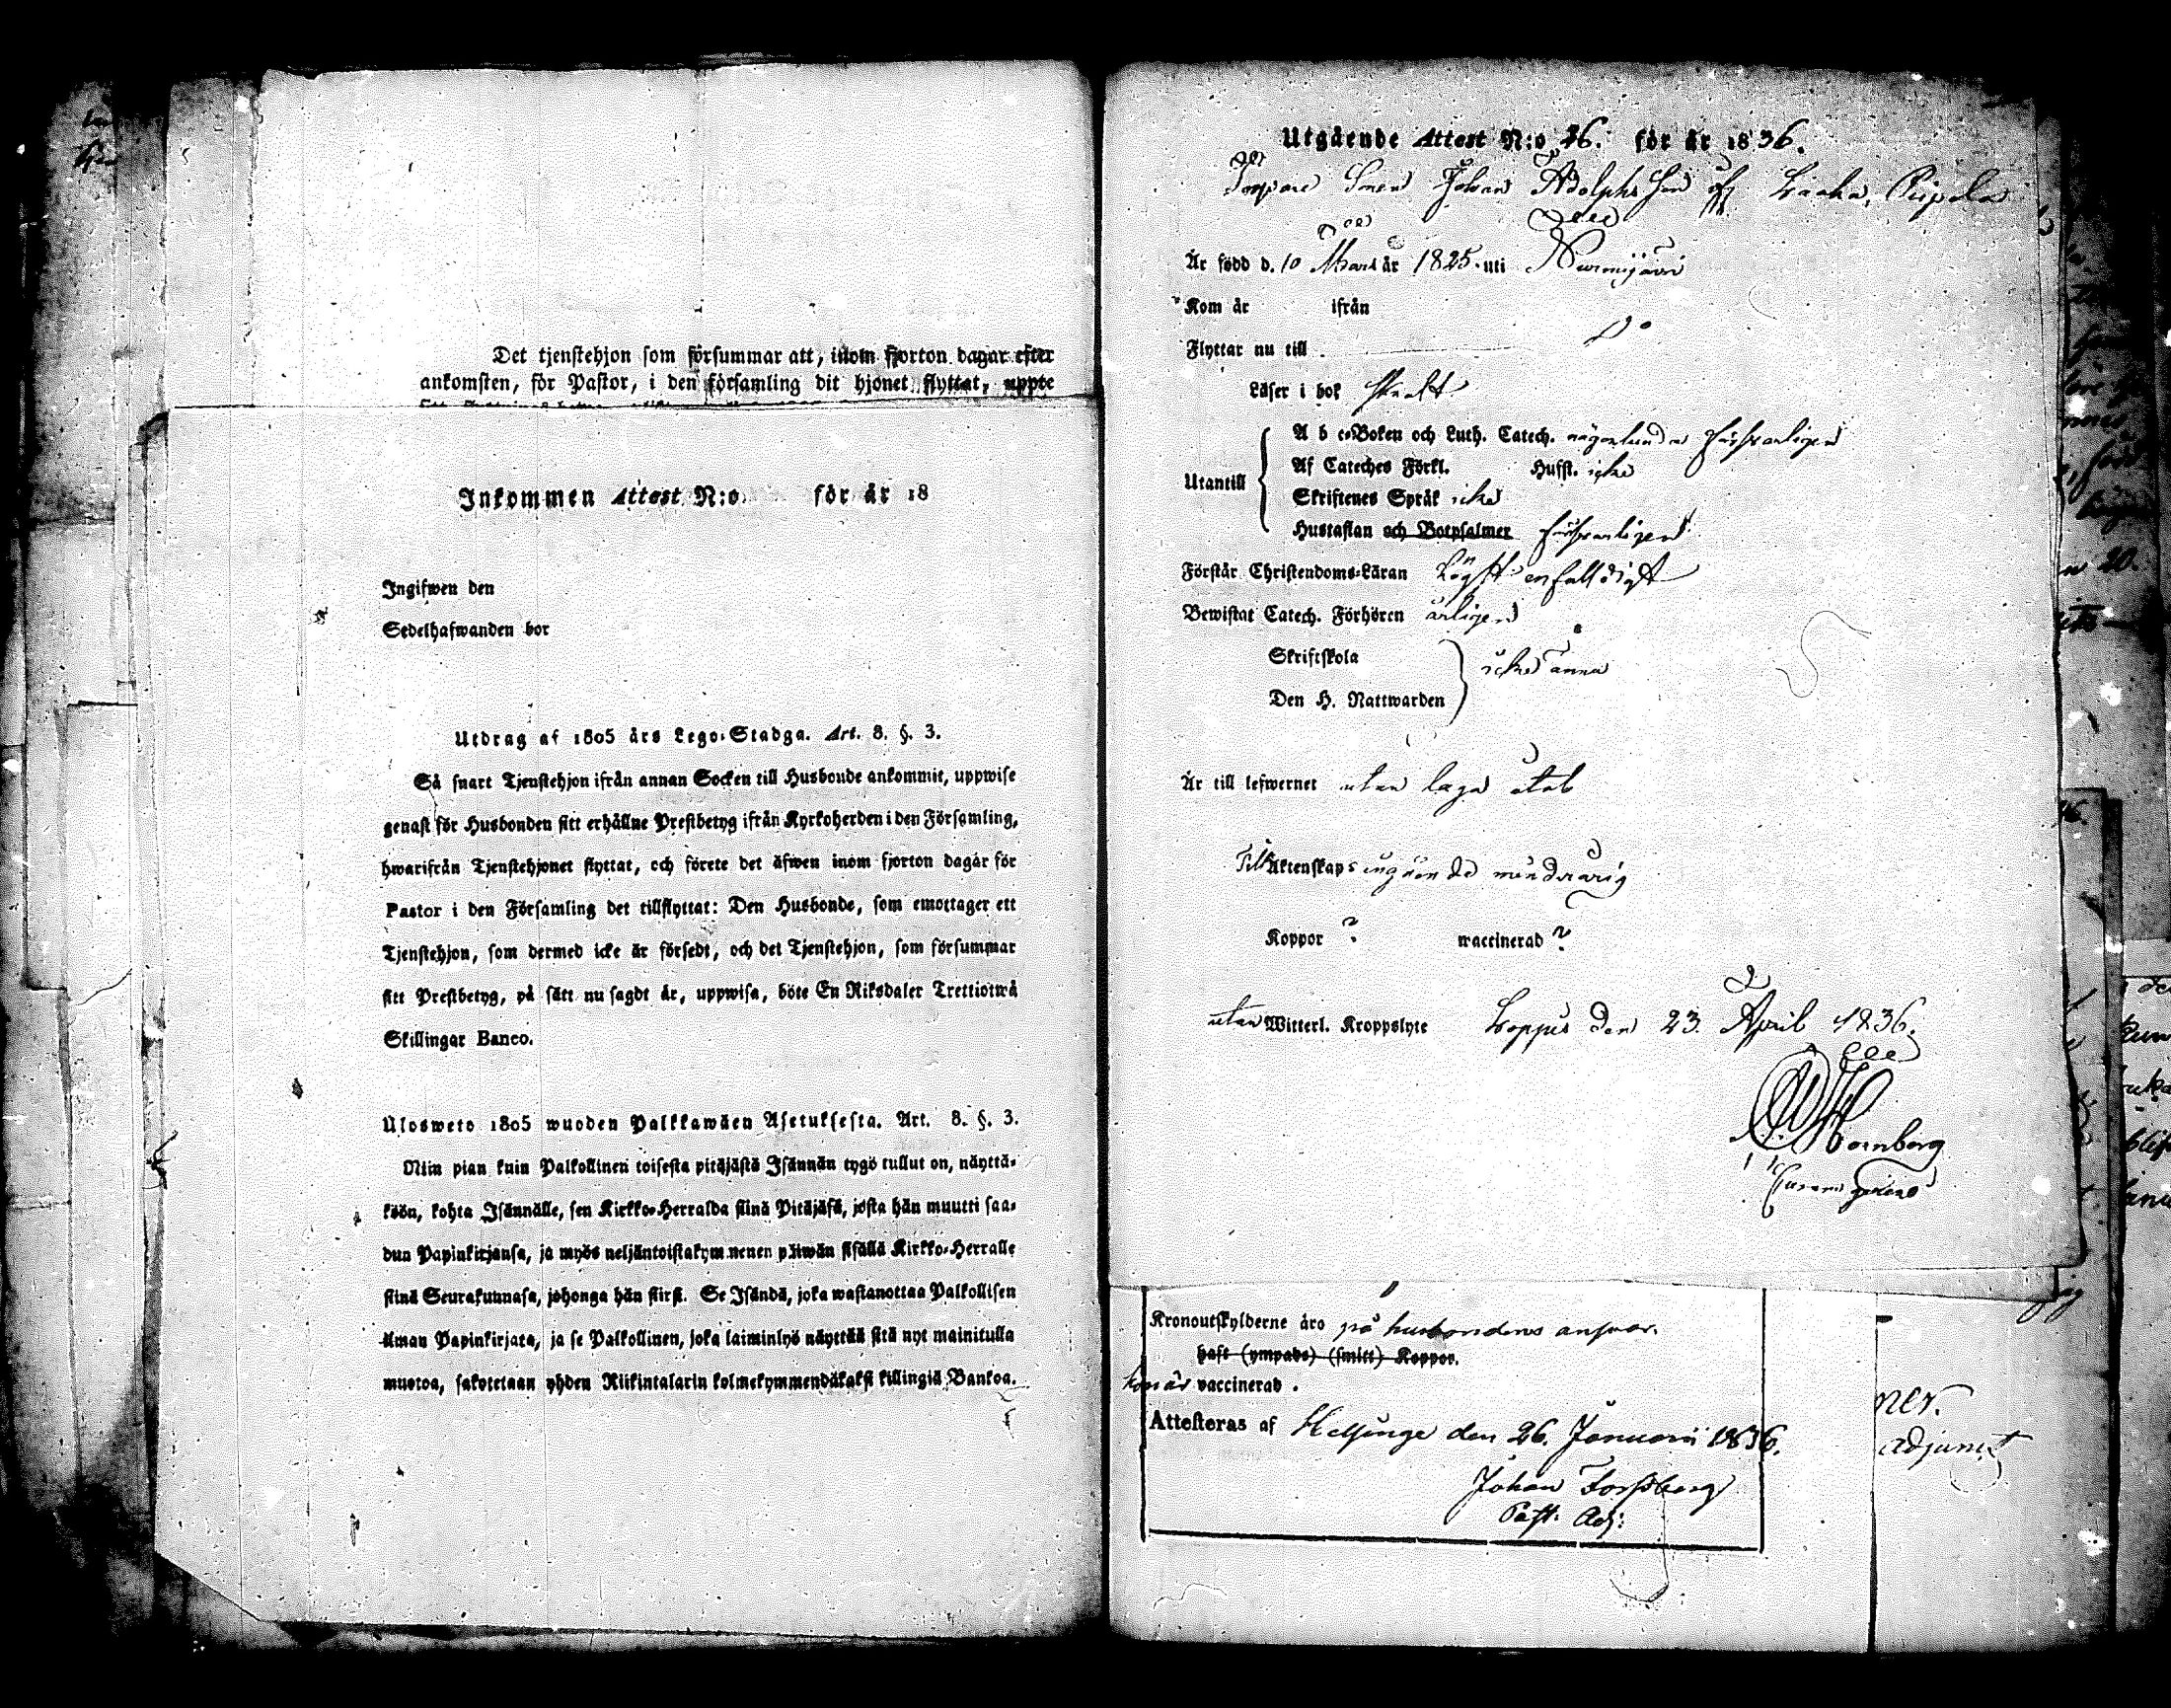 Det tjenstehjon som försummar att, inom fjorton dagar efter
ankomsten, för Pastor, i den församling dit hjonet flyttat, uppte
Inkommen Attest N:o för år 18
Ingifwen den
Sedelhafwanden bor
Utdrag af 1805 års Lego-Stadga. Art. 8. §. 3.
Så snart Tjenstehjon ifrån annan Socken till Husbonde ankommit, uppwise
genast för Husbonden sitt erhållne Prestbetyg ifrån Kyrkoherden i den Församling,
hwarifrån Tjenstehjonet flyttat, och förete det äfwen inom fjorton dagar för
Pastor i den Församling det tillflyttat: Den Husbonde, som emottager ett
Tjenstehjon, som dermed icke är försedt, och det Tjenstehjon, som försummar
sitt Prestbetyg, på sätt nu sagdt är, uppwisa, böte En Riksdaler Trettiotwå
Skillingar Banco.
Ulosweto 1805 wuoden Palkkawäen Asetuksesta. Art. 8. §. 3.
Niin pian kuin Palkollinen toisesta pitäjästä Isännän tygö tullut on, näyttä-
köön, kohta Isännälle, sen Kirkko-Herralda siinä Pitäjäsä, josta hän muutti saa-
dun Papinkirjansa, ja myös neljäntoistakymmenen päiwän sisällä Kirkko-Herralle
siinä Seurakunnasa, johonga hän siirsi. Se Isändä, joka wastanottaa Palkollisen
ilman Papinkirjata, ja se Palkollinen, joka laiminlyö näyttää sitä nyt mainitulla
muotoa, sakotetaan yhden Riikintalarin kolmekymmendäkaksi killingiä Bankoa.
Utgående Attest N:o 26. för år 1836.
Torpare Sonen Johan Adolphsson af Laaka, Pijpala
Är född d. 10 Mars år 1825. uti Nurmijärvi
Kom år ifrån
Flyttar nu till D:o
Läser i bok swalt
A b c-Boken och Luth. Catech. någorlunda försvarligen
Utantill
Af Cateches Förkl. Hufst. icke
Skriftenes Språk icke
Hustaflan och Botpsalmer försvarligen
Förstår Christendoms-Läran högst enfalldigt
Bewistat Catech. Förhören årligen
Skriftskola
icke ännu
Den H. Nattwarden
Är till lefwernet utan laga åtal
Till Äktenskaps ingående minderårig
Koppor ? waccinerad ?
utan Witterl. Kroppslyte Loppis den 23. April 1836.
Hornborg
Kronoutskylderne äro på husbondens ansvar.
haft (ympade) (smitt) Koppor.
hon är vaccinerad.
Attesteras af Helsinge den 26. Januari 1836.
Johan Forssberg
Past. Adj:
adjunct